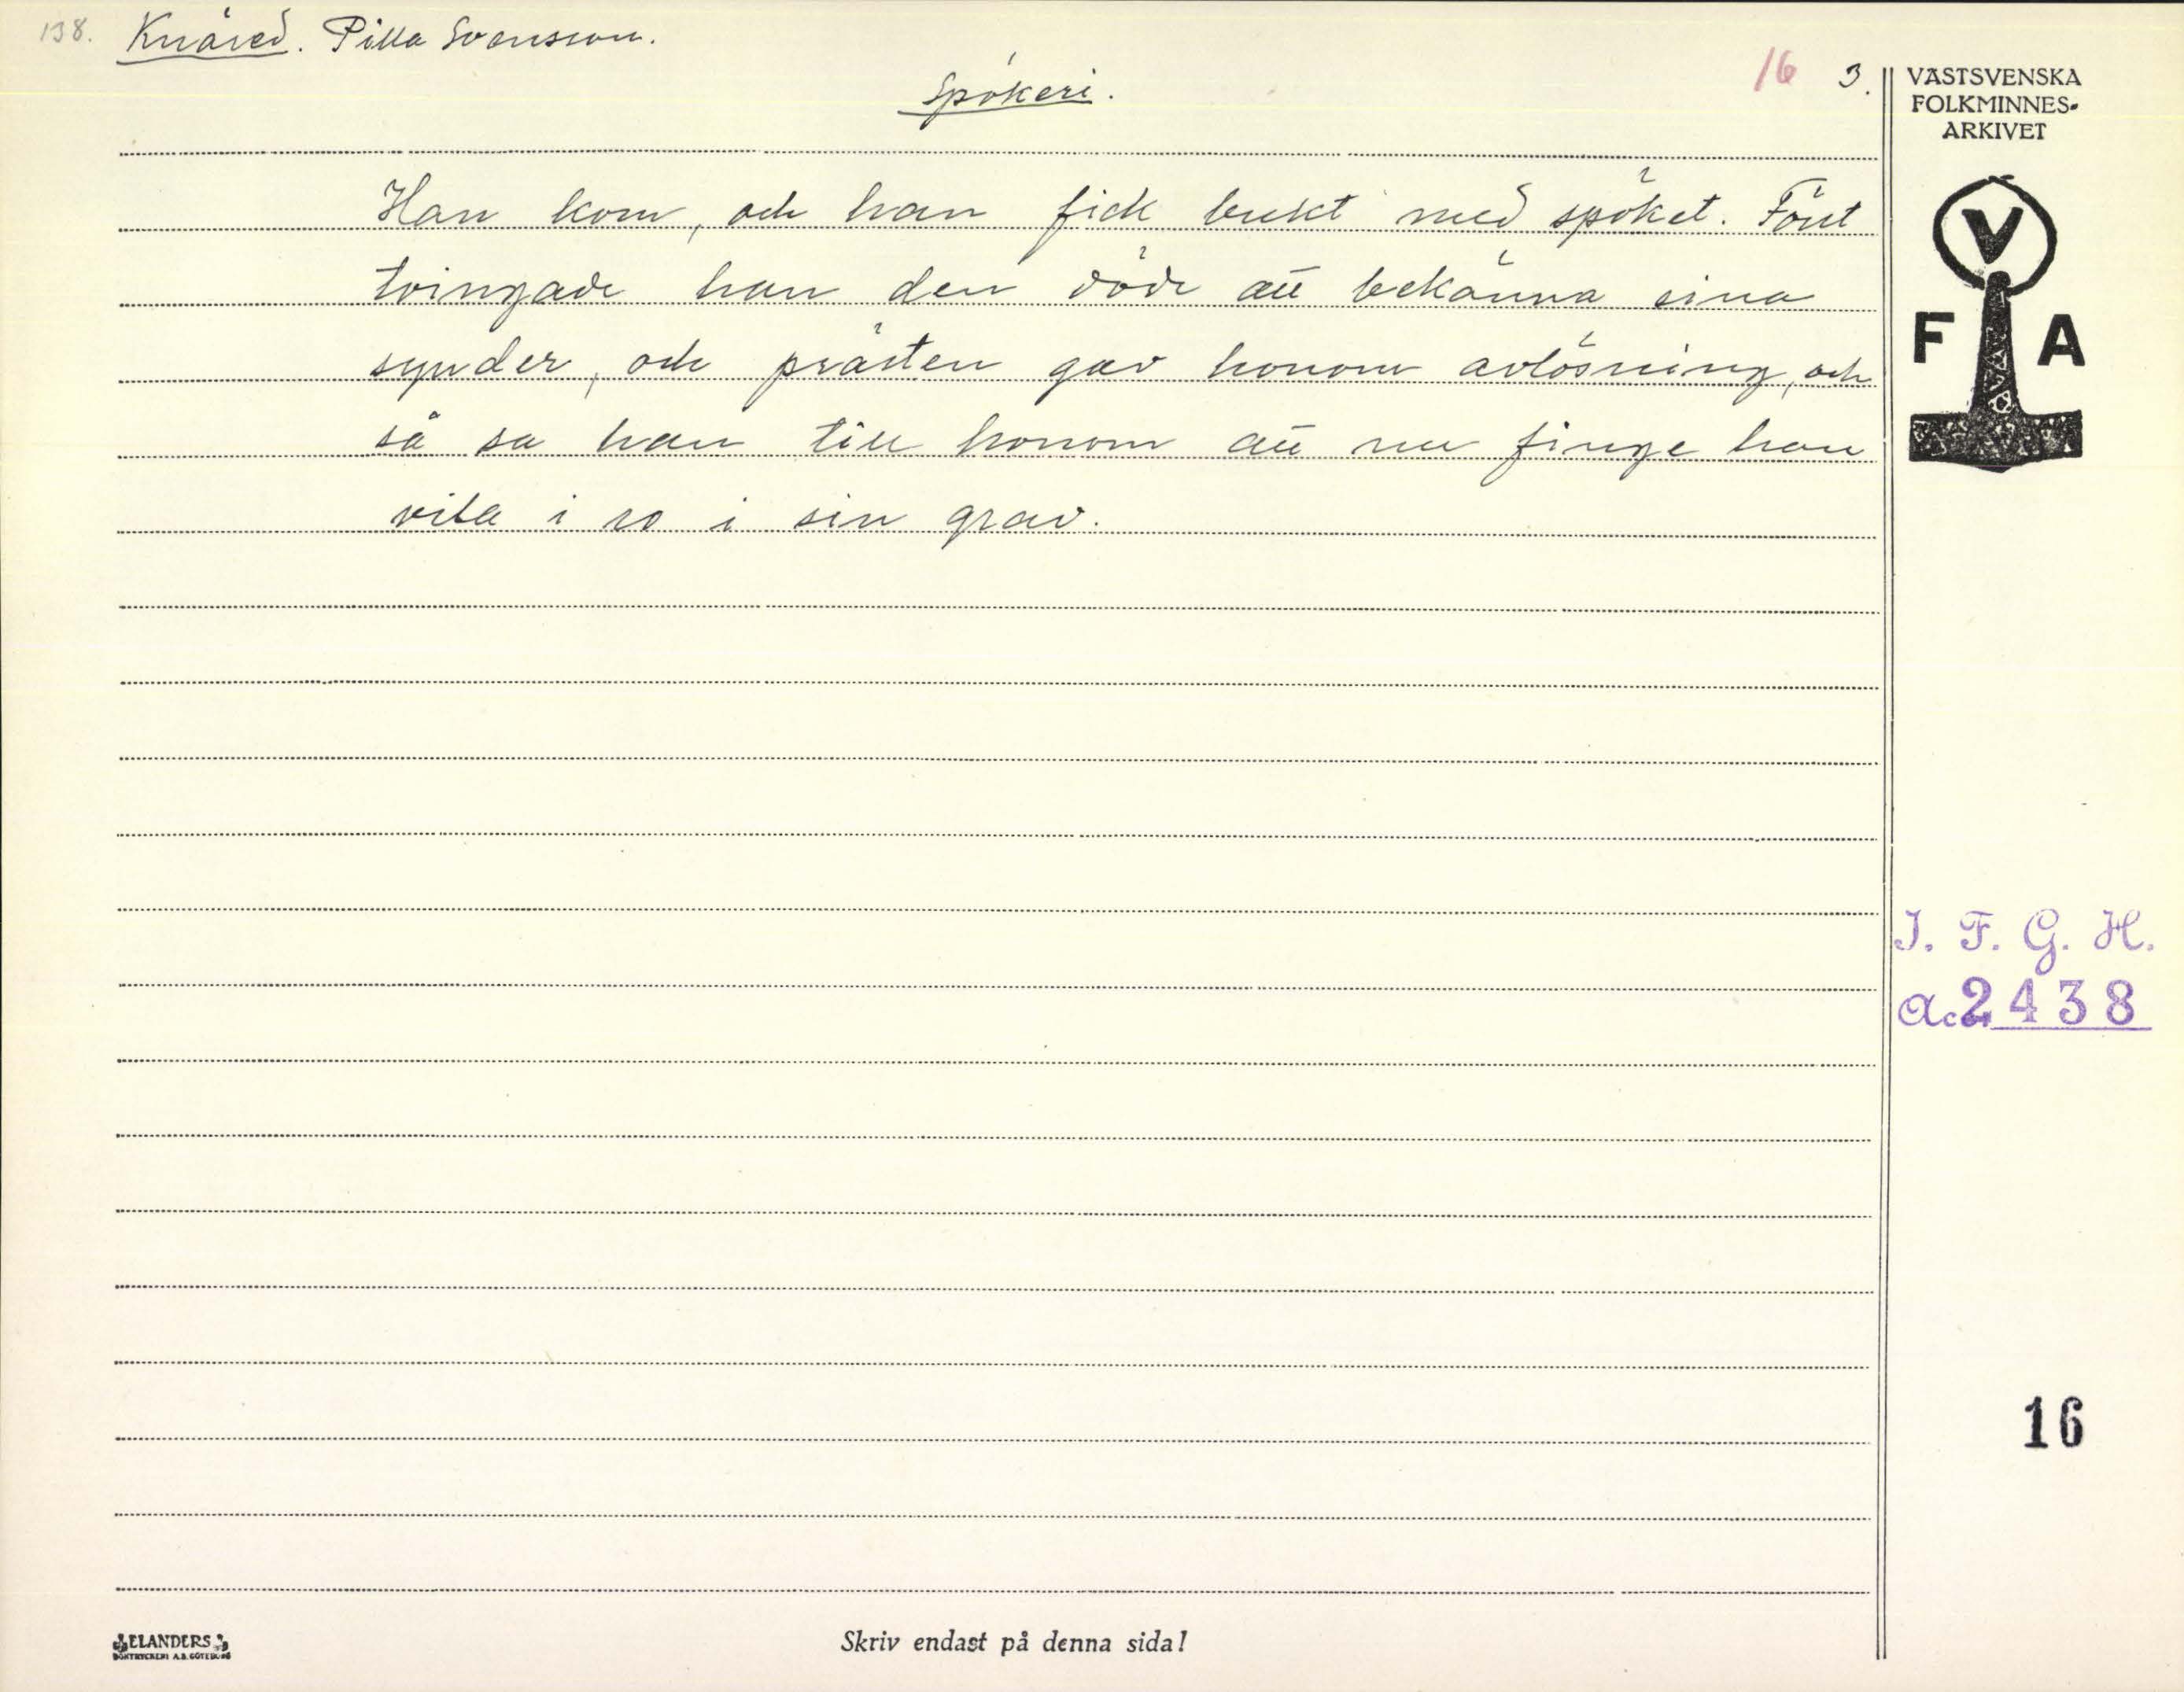 138. Knäred. Pilla Svensson.
Spökeri.
16 3.
VÄSTSVENSKA
FOLKMINNES-
ARKIVET
V
F A
Han kom, och han fick bukt med spöket. Först
tvingade han den döde att bekänna sina
synder, och prästen gav honom avlösning, och
så sa han till honom att nu finge han
vila i ro i sin grav.
I. F. G. H.
Acc. 2438
16
ELANDERS
BOKTRYCKERI A.B. GÖTEBORG
Skriv endast på denna sida!